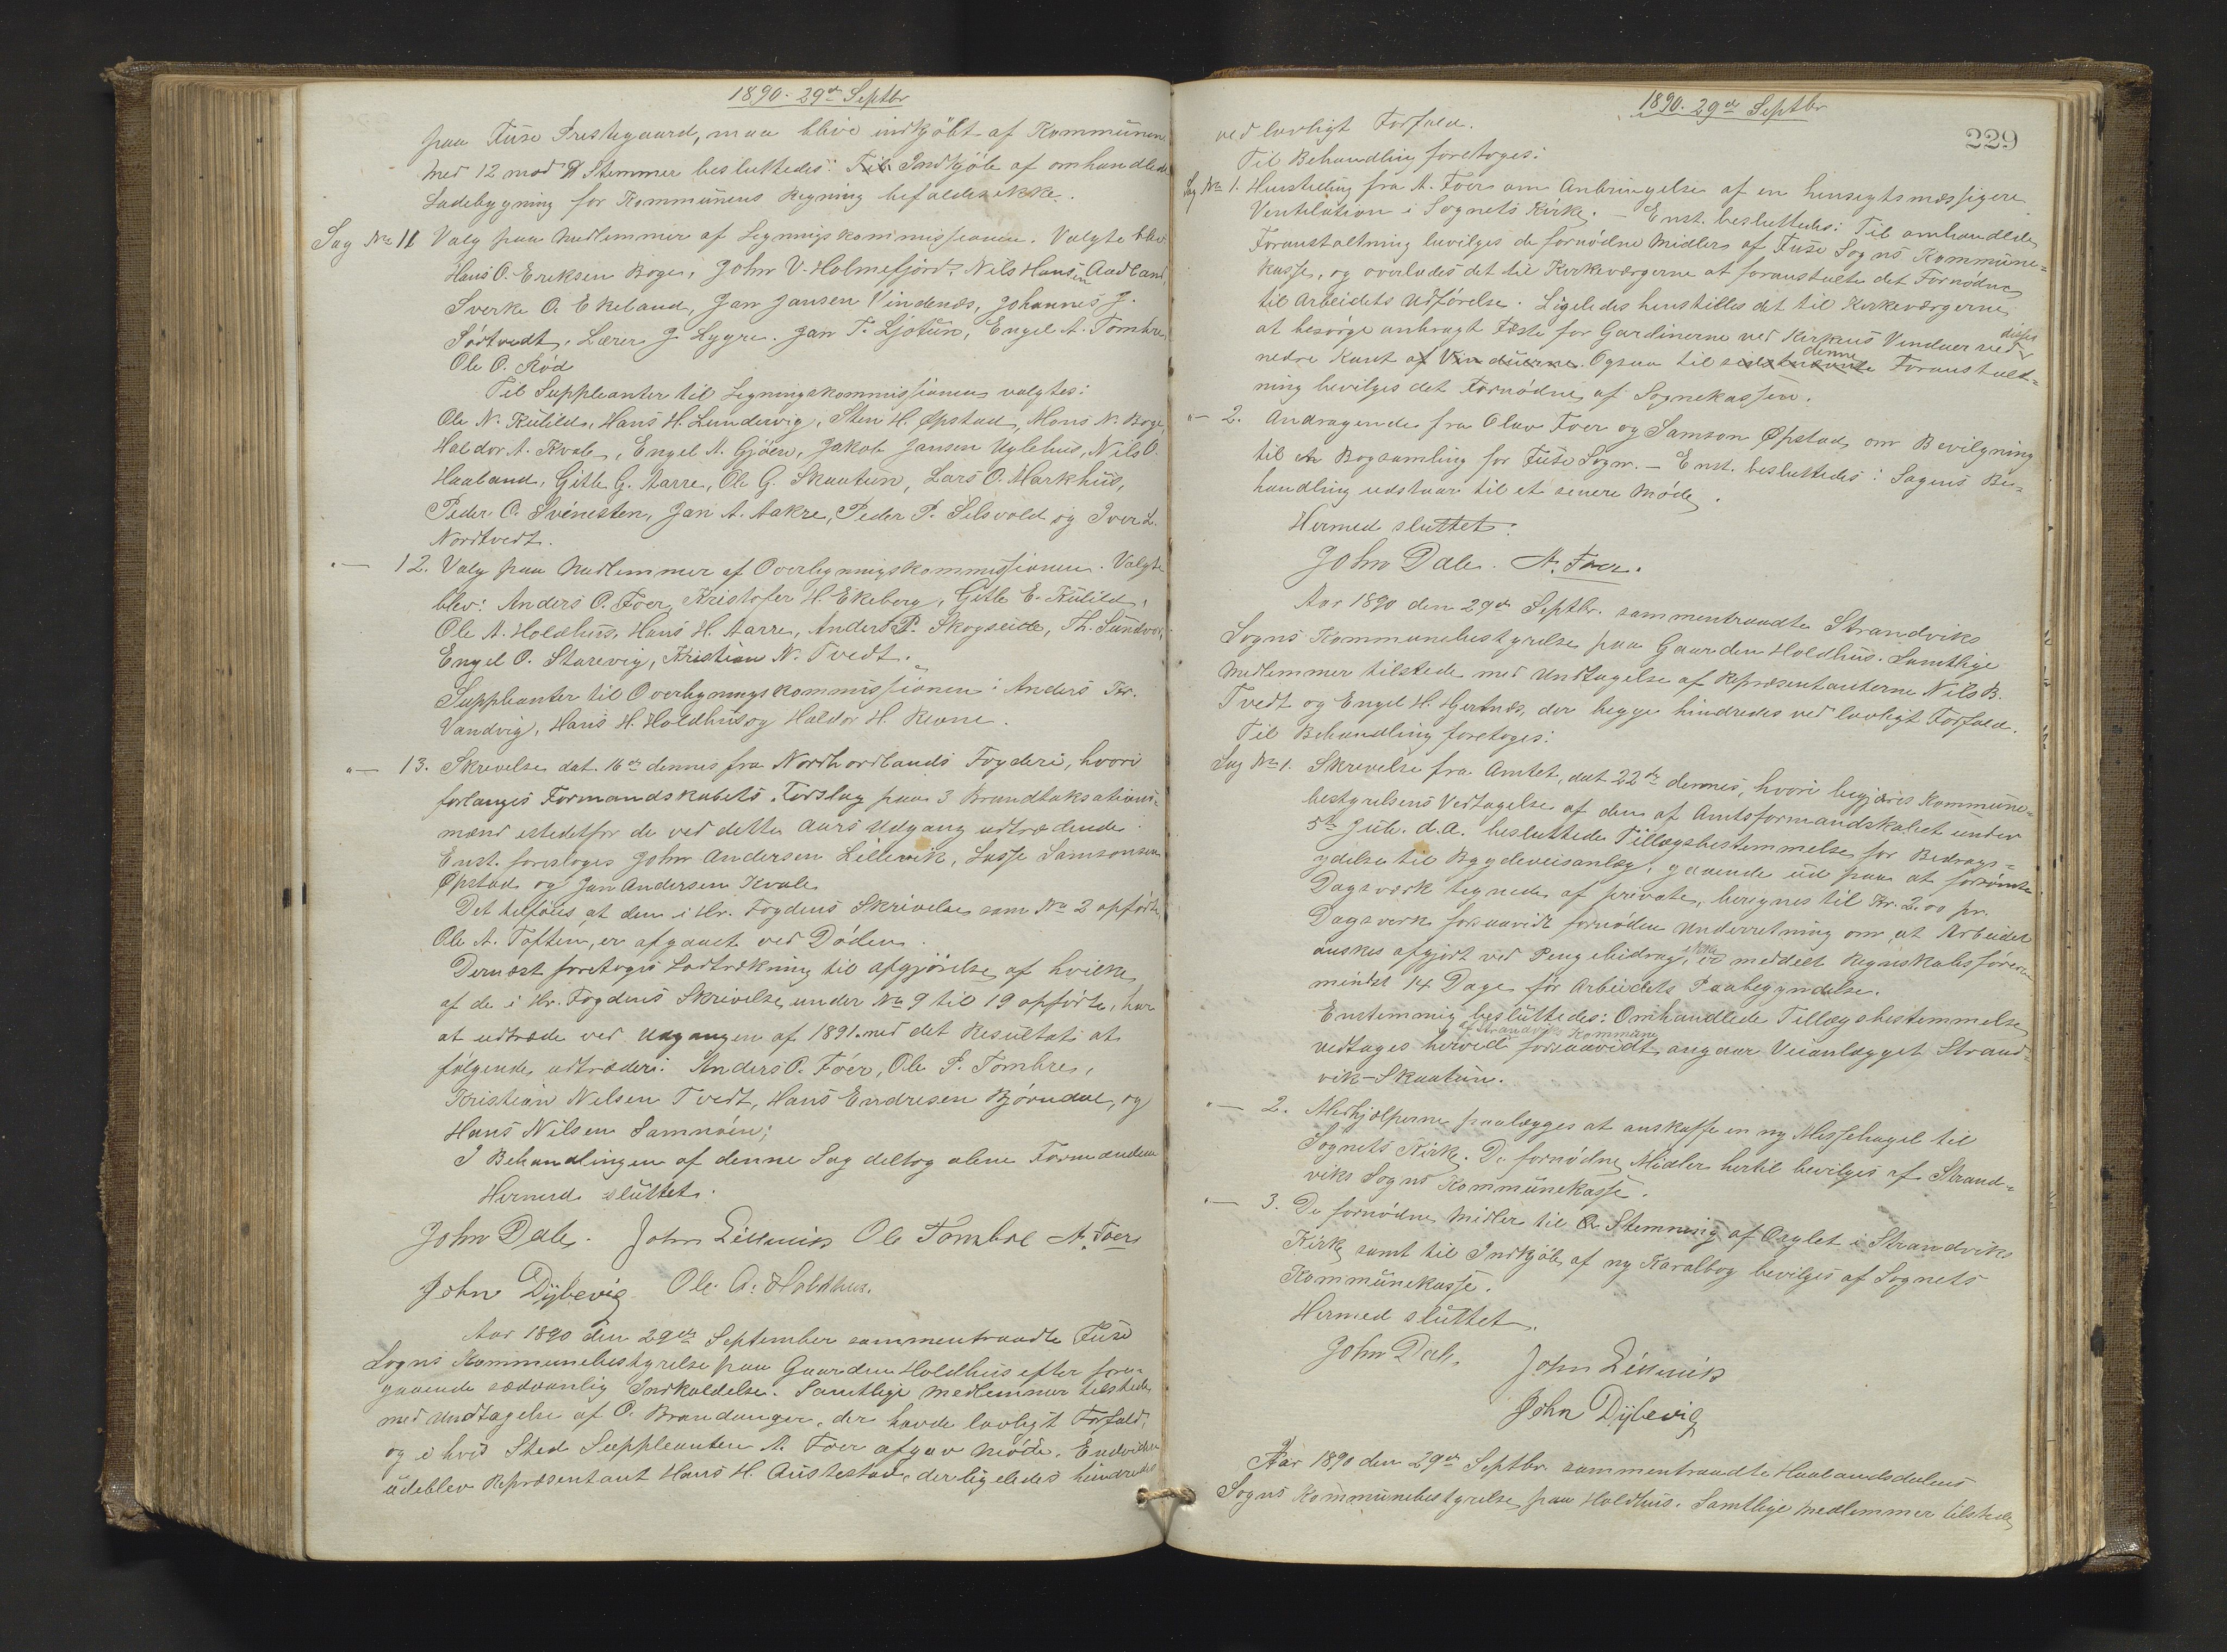 1890. 29de Septbr
paa Fuse Prestegaard, maa blive indkjøbt af Kommunen.
Med 12 mod 11 Stemmer besluttedes: Til Indkjøb af omhandlede
Ladebygning for Kommunens Regning befaldes ikke.
Sag No 11 Valg paa Medlemmer af Ligningskommissionen. Valgte blev
Hans O. Eriksen Boge, John V. Holmefjord, Nils Hansen Aadland,
Sverke O. Ekeland, Jan Jansen Vindenes, Johannes J.
Sørtvedt, Lærer J. Lygre, Jan T. Ljotun, Engel A. Tombre,
Ole O. Rød
Til Suppleanter til Ligningskommissionen valgtes:
Ole N. Kulild, Hans H. Lundervig, Sten H. Øpstad, Mons N. Boge,
Haldor A. Kvale, Engel A. Gjøen, Jakob Jansen Uglehus, Nils O.
Haaland, Gitle G. Aarre, Ole G. Skaatun, Lars O. Markhus,
Peder O. Svinesten, Jan A. Aakre, Peder P. Silsvold og Iver L.
Nordtvedt.
"— 12. Valg paa Medlemmer af Overligningskommissionen. Valgte
blev: Anders O. Foer, Kristofer H. Ekeberg, Gitle E. Kulild,
Ole A. Holdhus, Hans H. Aarre, Anders P. Skogseide, Th. Sundvor,
Engel O. Storevig, Kristian N. Tvedt.
Suppleanter til Overligningskommissionen: Anders Kr.
Vandvig, Hans H. Holdhus og Haldor H. Revne.
"— 13. Skrivelse dat. 16de dennes fra Nordhordlands Fogderi, hvori
forlanges Formandskabets Forslag paa 3 Brandtaksations-
mænd istedetfor de ved dette Aars Udgang udtrædende.
Enst. foresloges John Andersen Lillevik, Lasse Samsonsen
Øpstad og Jan Andersen Kvale
Det tilføies at den i Hr. Fogdens Skrivelse som No 2 opførte,
Ole A. Toften, er afgaaet ved Døden.
Dernæst foretoges Lodtrækning til Afgjørelse af hvilke
af de i Hr. Fogdens Skrivelse under No 9 til 19 opførte, har
at udtræde ved Udgangen af 1891. med det Resultat at
følgende udtræder: Anders O. Foer, Ole P. Tombre,
Kristian Nilsen Tvedt, Hans Endresen Bjørndal, og
Hans Nilsen Samnøen;
I Behandlingen af denne Sag deltog alene Formændene
Hermed sluttet.
John Dale. John Lillevik Ole Tombre A. Foer
John Dybevig Ole A. Holdhus.
Aar 1890 den 29de September sammentraadte Fuse
Sogns Kommunebestyrelse paa Gaarden Holdhus efter fore-
gaaende sædvanlig Indkaldelse. Samtlige Medlemmer tilstede
med Undtagelse af O. Brandanger, der havde lovligt Forfald,
og i hvis Sted Suppleanten A. Foer afgav Møde. Endvidere
udeblev Repræsentant Hans H. Austestad, der ligeledes hindredes
1890. 29de Septbr
229
ved lovligt Forfald.
Til Behandling foretoges:
Sag No 1. Henstilling fra A. Foer om Anbringelse af en hensigtsmæssigere
Ventilation i Sognets Kirke. — Enst. besluttedes: Til omhandlede
Foranstaltning bevilges de fornødne Midler af Fuse Sogns Kommune-
kasse, og overlades det til Kirkeværgerne at foranstalte det Fornødne
til Arbeidets Udførelse. Ligeledes henstilles det til Kirkeværgerne
at besørge anbragt Fæste for Gardinerne ved Kirkens Vinduer ved disses
nedre Kant af Vinduerne. Ogsaa til sidstnævnte denne Foranstalt-
ning bevilges det Fornødne af Sognekassen.
"— 2. Andragende fra Olav Foer og Samson Øpstad om Bevilgning
til en Bogsamling for Fuse Sogn. — Enst. besluttedes: Sagens Be-
handling udstaar til et senere Møde.
Hermed sluttet.
John Dale. A. Foer.
Aar 1890 den 29de Septbr. sammentraadte Strandviks
Sogns Kommunebestyrelse paa Gaarden Holdhus. Samtlige
Medlemmer tilstede med Undtagelse af Repræsentanterne Nils B.
Tvedt og Engel H. Gjertnes, der begge hindredes ved lovligt Forfald.
Til Behandling foretoges:
Sag No 1. Skrivelse fra Amtet, dat 22de dennes, hvori begjæres Kommune-
bestyrelsens Vedtagelse af den af Amtsformandskabet under
5te Juli d.A. besluttede Tillægsbestemmelse for Bidrags-
ydelse til Bygdeveisanlæg, gaaende ud paa at forsømte
Dagsværk tegnede af private, beregnes til Kr. 2.00 pr.
Dagsverk forsaavidt fornøden Underretning om, at Arbeidet
ønskes afgjort ved Pengebidrag, ikke er meddelt Regnskabsføreren
mindst 14 Dage før Arbeidets Paabegyndelse.
Enstemmig besluttedes: Omhandlede Tillægsbestemmelse
vedtages herved af Strandvik Kommune forsaavidt angaar Veianlægget Strand-
vik–Skaatun.
"— 2. Medhjælperne paalægges at anskaffe en ny Messehagel til
Sognets Kirke. De fornødne Midler hertil bevilges af Strand-
viks Sogns Kommunekasse.
"— 3. De fornødne Midler til Stemning af Orglet i Strandviks
Kirke samt til Indkjøb af ny Koralbog bevilges af Sognets
Kommunekasse.
Hermed sluttet.
John Dale. John Lillevik
John Dybevig
Aar 1890 den 29de Septbr. sammentraadte Haalandsdalens
Sogns Kommunebestyrelse paa Holdhus. Samtlige Medlemmer tilstede